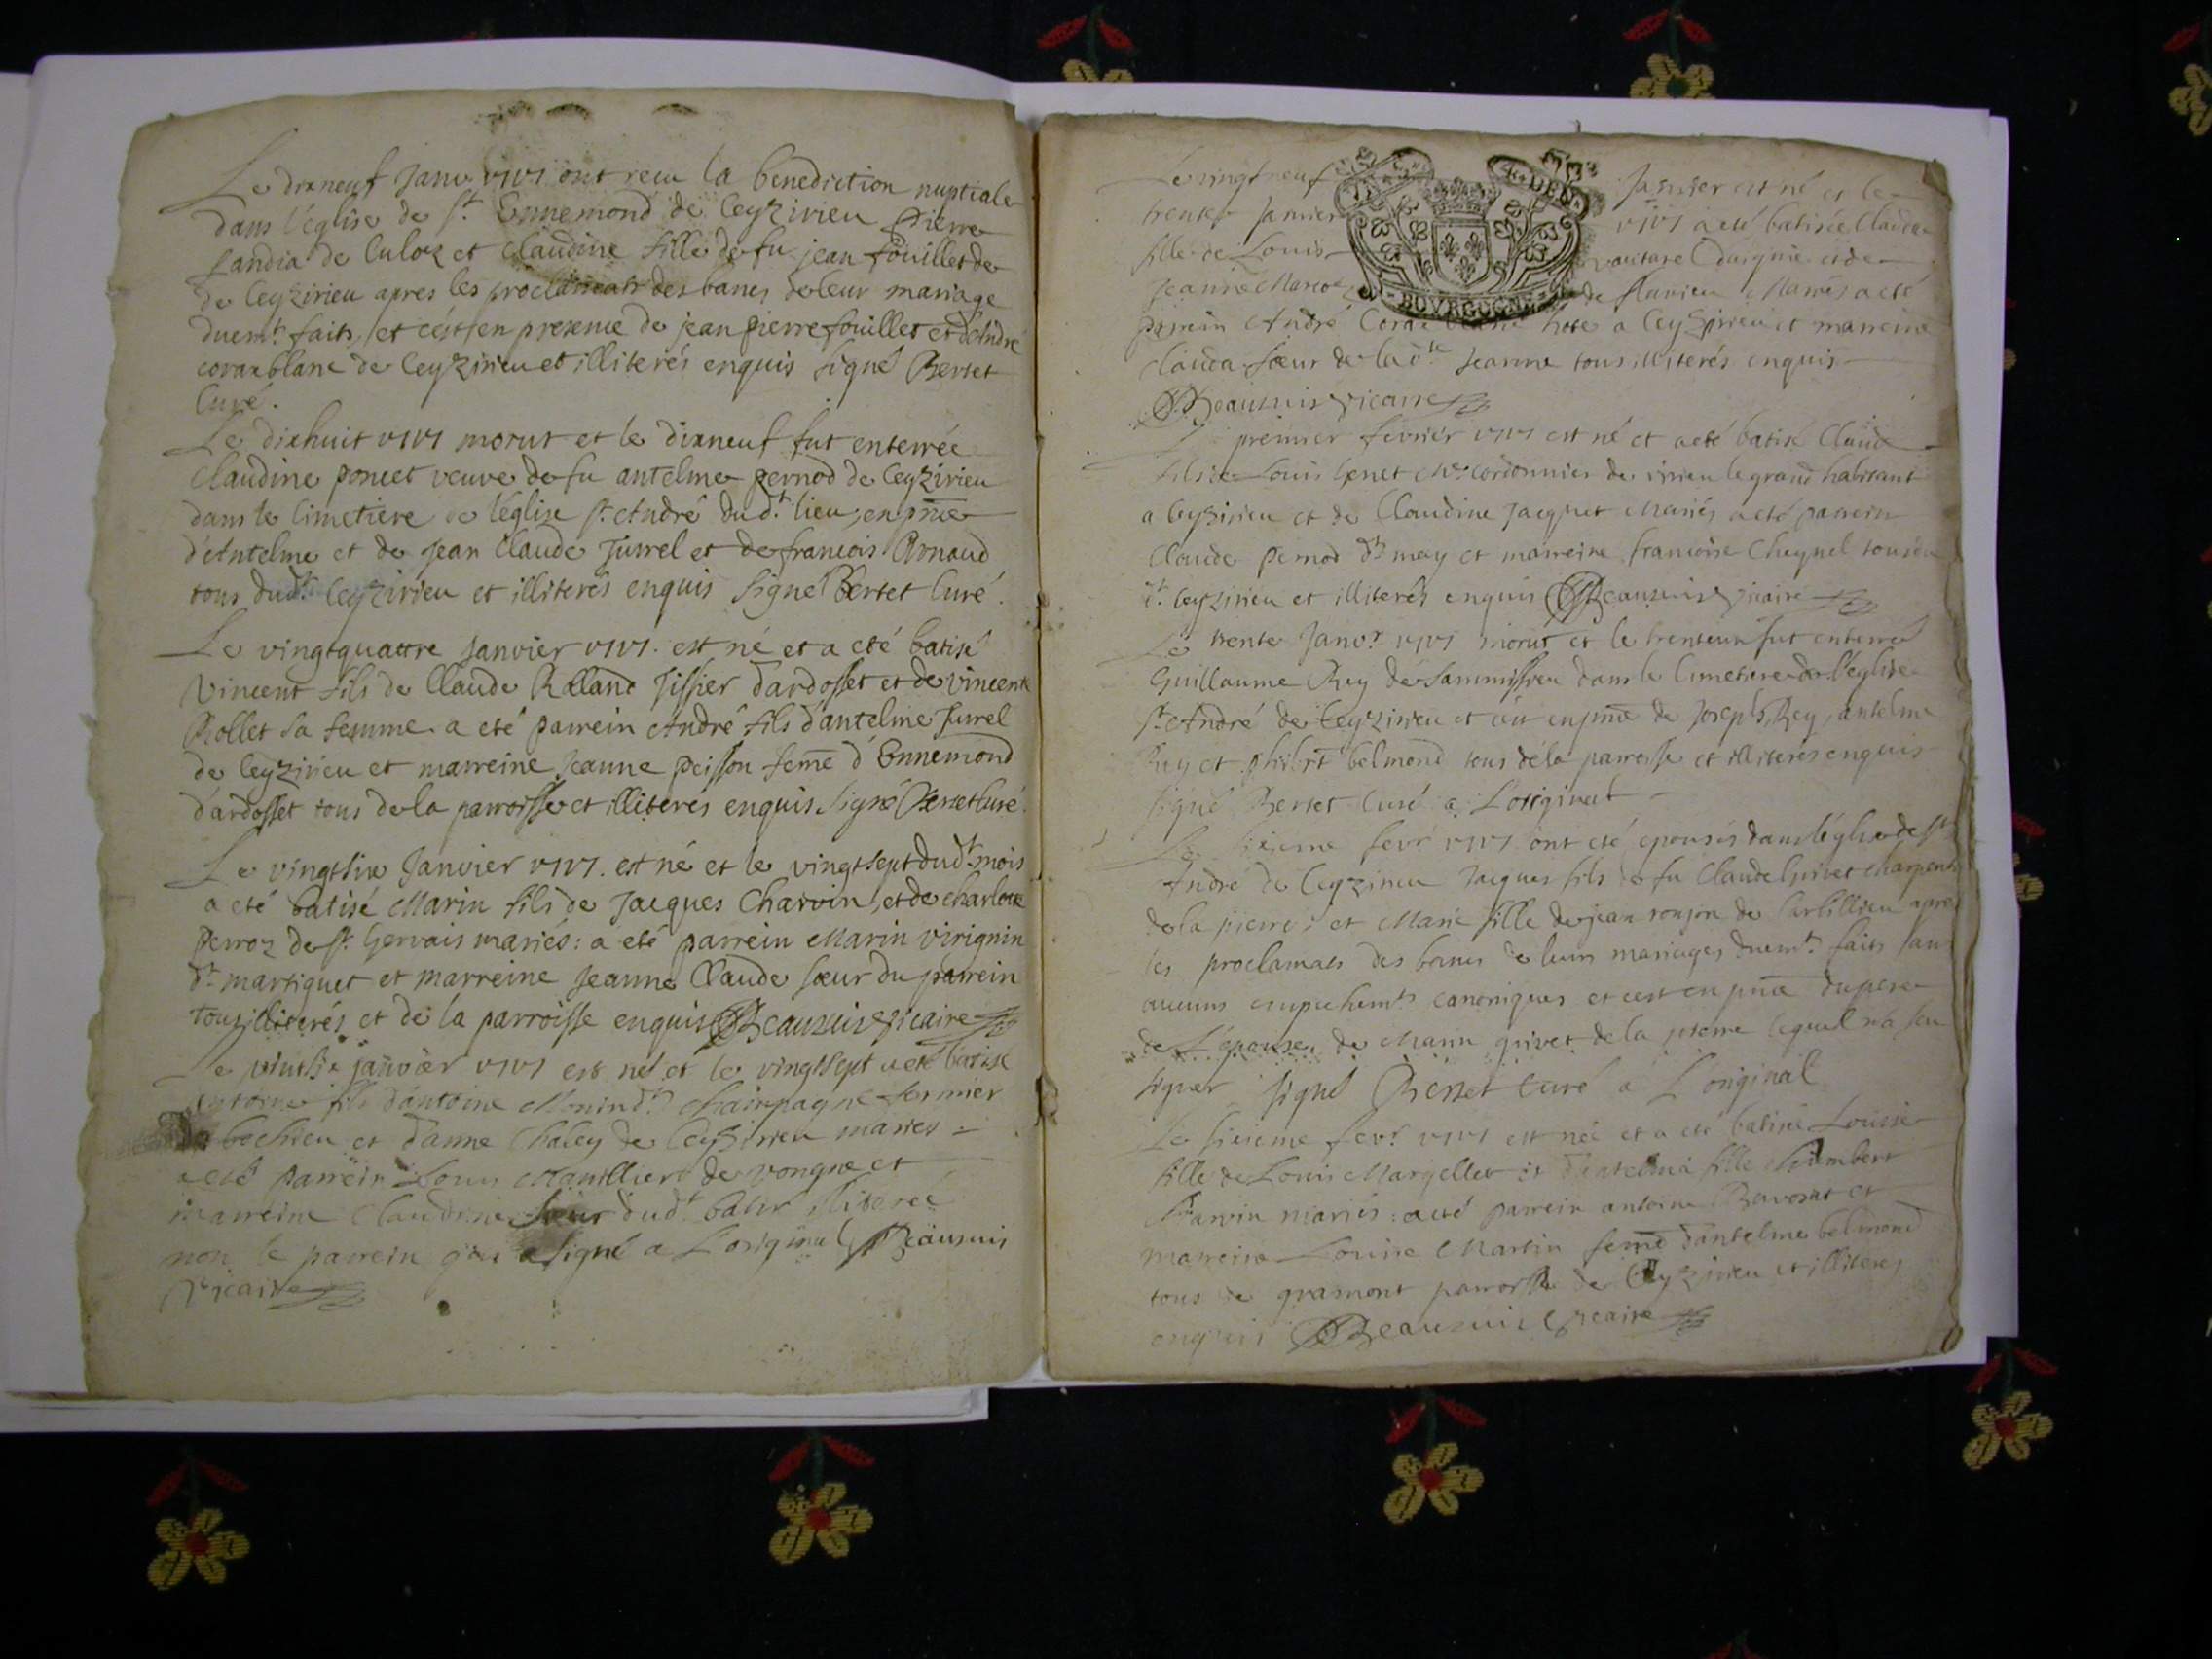 Le dixneuf Janv 1717 ont recu la benediction nuptiale
dans l'église de St Ennemond de Ceyzirieu Pierre
Landia de Culoz et Claudine fille de fu jean fouillet de
de Ceyzirieu apres les proclamats des bancs de leur mariage
duemt faits, et c'est en presence de jean pierre fouillet et d'André
coraxblanc de Ceyzirieu et illiterés enquis signé Bertet
Curé.
Le dixhuit 1717 morut et le dixneuf fut enterrée
Claudine poncet veuve de fu antelme pernod de Ceyzirieu
dans le Cimetiere de l'église St André dudt lieu, en pnce
d'Antelme et de Jean Claude Jurrel et de francois Arnaud
tous dudt Ceyzirieu et illiterés enquis signé Bertet Curé.
Le vingtquattre Janvier 1717. est né et a eté batisé
Vincent fils de Claude Rolland Tissier d'ardosset et de vincente
Rollet sa femme. a eté parrein André fils d'antelme Jurrel
de Ceyzirieu et marreine Jeanne peisson feme d'Ennemond
d'ardosset tous de la parroisse et illiterés enquis signé Bertet curé.
Le vingtsix Janvier 1717. est né et le vingtsept dudt mois
a eté batisé Marin fils de Jacques Charvin, et de charlotte
perroz de St Gervais mariés: a eté parrein Marin virignin
dt martiquet et marreine Jeanne Claude sœur du parrein
tous illiterés et de la parroisse enquis Beauzuis vicaire
Le janvier 1717 est né et le vingtsept a eté batisé
fils d'antoine Monin dt Champagne fermier
de bechieu et d'anne Chaley de Ceyzirieu mariés =
a eté parrein Louis de vongne et
marreine Claudine sœur dudt illiterée
non le parrein qui a signé a L'original Beauzuis
Vicaire
Le vingt neuf Janvier est né et le
trente Janvier 1717 a eté batisée Clauda
fille de Louis et de
Jeanne de flavieu Mariés a eté
BOVRGOGNE
parrein André hote a Ceyzirieu et marreine
Clauda sœur de la dte Jeanne tous illiterés enquis
Beauzuis vicaire
premier fevrier 1717 est né et a eté batisé Claude
fils de Louis Me cordonnier de virieu le grand habitant
a Ceyzirieu et de Claudine Jacquet Mariés a eté parrein
Claude pernod dt may et marreine francoise Cheynel tous du
dt Ceyzirieu et illiterés enquis Beauzuis vicaire
Le trente Janvr 1717 morut et le trenteun fut enterré
Guillaume Rey de Sammissieu dans le Cimetiere de l'église
St André de Ceyzirieu et c'est en pnce de Joseph Rey, antelme
Rey et belmond tous de la parroisse et illiterés enquis
signé Bertet Curé a L'original
Le sixieme fevr 1717 ont eté epousés dans l'église de St
André de Ceyzirieu Jacques fils de fu Claude grivet charpent
de la pierre; et Marie fille de jean de apres
les proclamats des bancs de leurs mariages duemt faits sans
aucuns empechemts canoniques et c'est en pnce du pere
de L'epouse, de Marin grivet de la pierre lequel n'a sçu
signer signé Bertet Curé a L'original
Le sixieme fevr 1717 est née et a eté batisé Louise
fille de Louis et d'antelma fille d'humbert
Charvin mariés: a eté parrein antoine et
marreine Louise Martin feme d'antelme belmond
tous de gramont parroisse de Ceyzirieu et illiterés
enquis Beauzuis vicaire